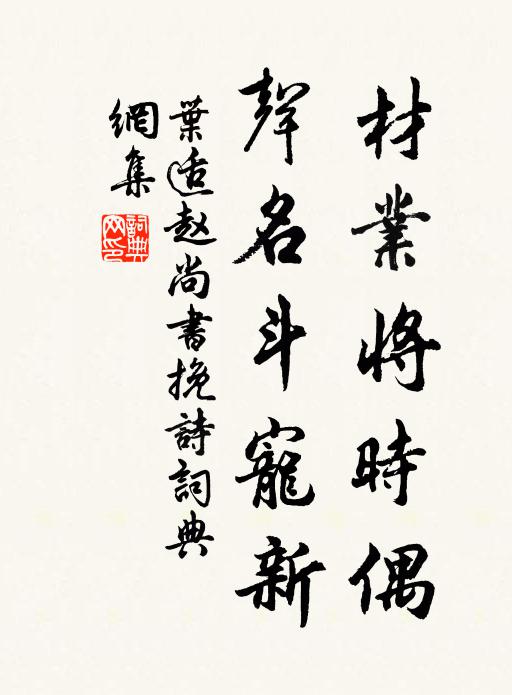 材業將時偶
聲名斗寵新
葉适赵尚書挽詩詞典
網集
詞典網印